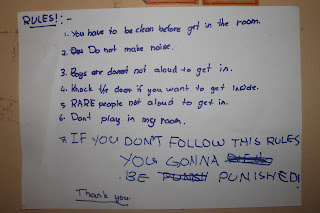 RULES!:-
1. You have to be clean before get in the room.
2. Do not make noise.
3. Boys are not aloud to get in.
4. Knock the door if you want to get inside.
5 RARE people not aloud to get in.
6. Dont play in my room.
7. IF YOU DON'T FOLLOW THIS RULES
YOU GONNA
BE PUNISHED!
Thank you